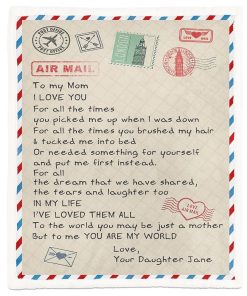 POST OFFICE
LONDON
AIR MAIL
To my Mom
I LOVE YOU
For all the times
you picked me up when I was down
For all the times you brushed my hair
& tucked me into bed
Or needed something for yourself
and put me first instead.
For all
the dream that we have shared,
the tears and laughter too
IN MY LIFE
I'VE LOVED THEM ALL
To the world you may be just a mother
But to me YOU ARE MY WORLD
Love,
Your Daughter Jane